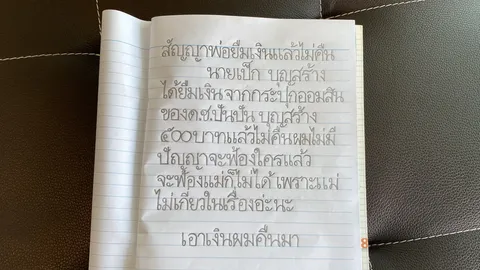 สัญญาพ่อยืมเงินแล้วไม่คืน
นายเป็ก บุญสร้าง
ได้ยืมเงินจากกระปุกออมสิน
ของด.ช.ปันปัน บุญสร้าง
๕๐๐บาทแล้วไม่คืนผมไม่มี
ปัญญาจะฟ้องใครแล้ว
จะฟ้องแม่ก็ไม่ได้ เพราะแม่
ไม่เกี่ยวในเรื่องอ่ะนะ
เอาเงินผมคืนมา